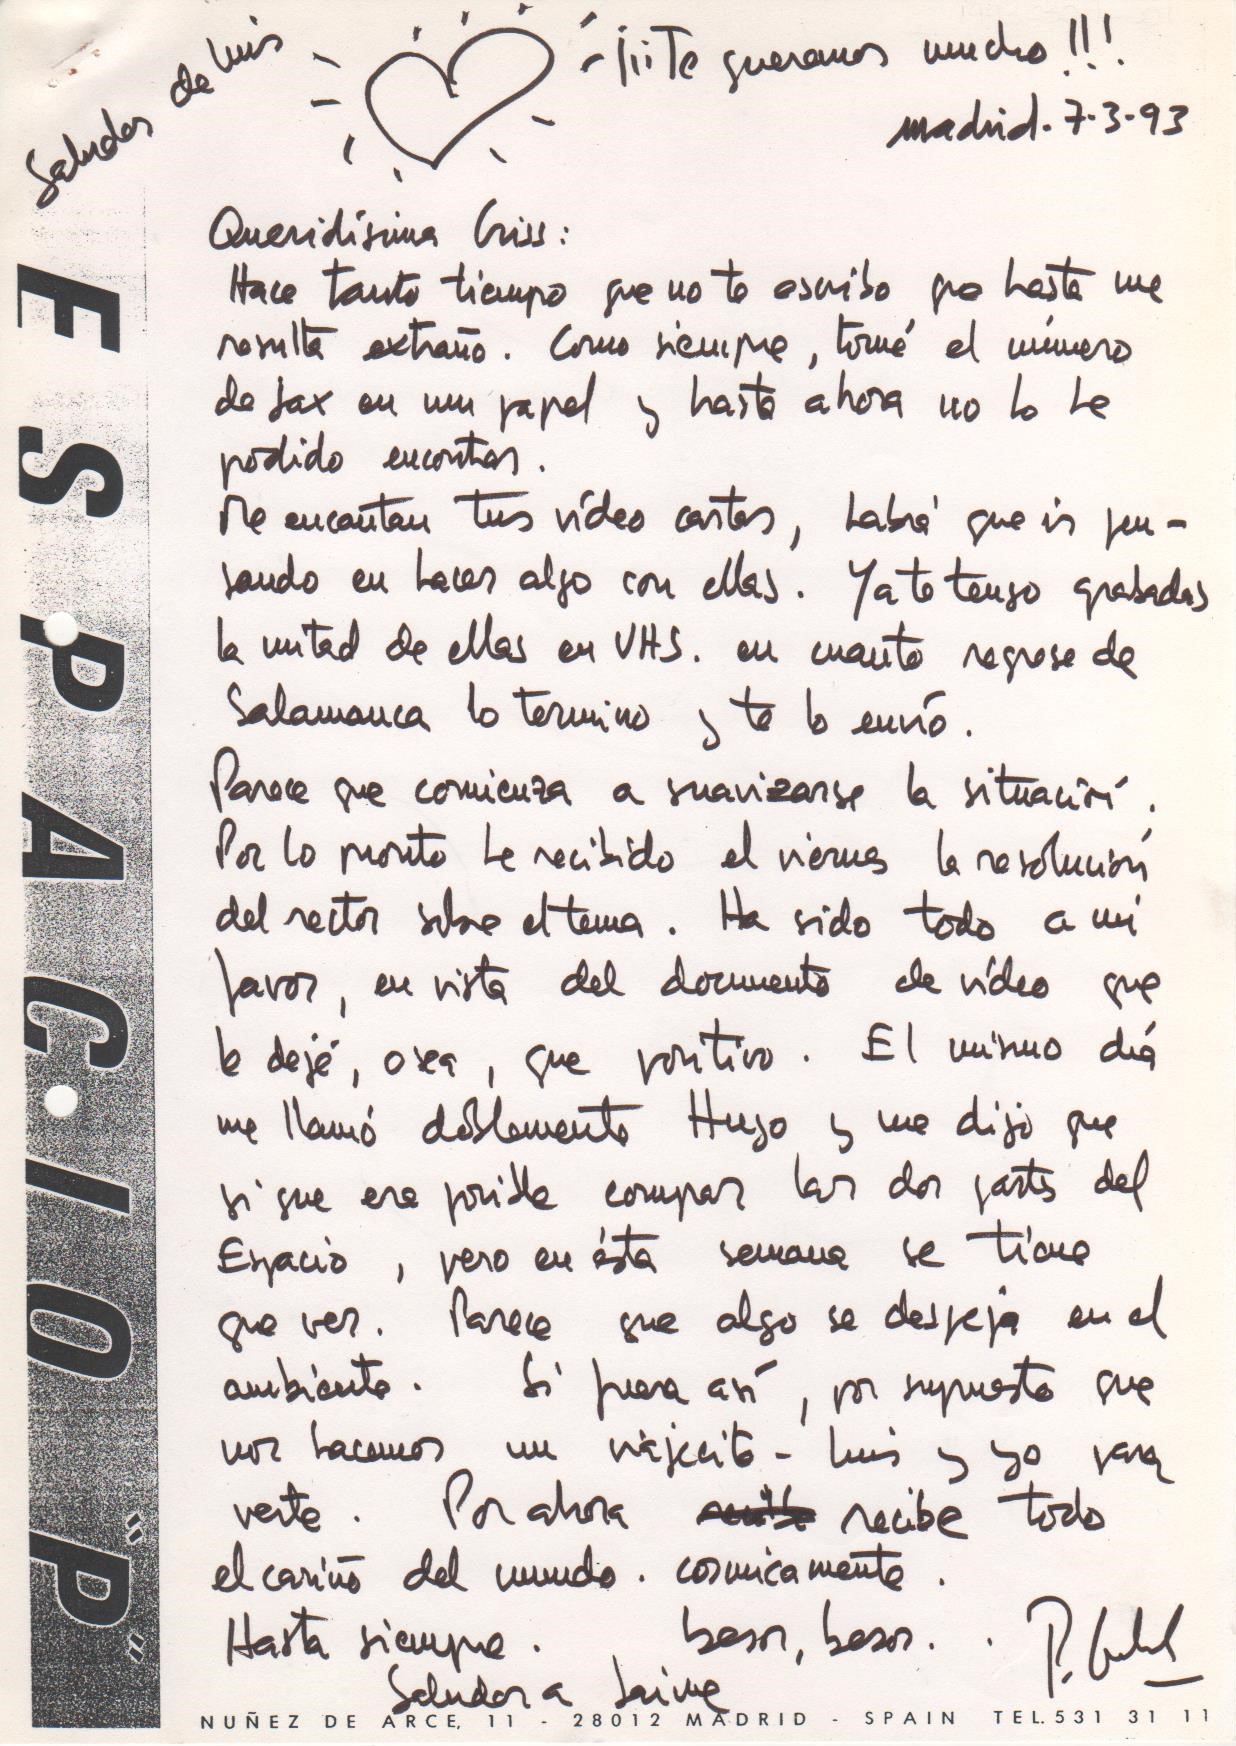 Saludos de Luis
¡¡¡Te queremos mucho!!!
madrid. 7-3-93
Queridísima Criss:
Hace tanto tiempo que no te escribo que hasta me
resulta extraño. Como siempre, tomé el número
de fax en un papel y hasta ahora no lo he
podido encontrar.
Me encantan tus vídeo cartas, habrá que ir pen-
sando en hacer algo con ellas. Ya te tengo grabadas
la mitad de ellas en VHS. en cuanto regrese de
Salamanca lo termino y te lo envío.
Parece que comienza a suavizarse la situación.
Por lo pronto he recibido el viernes la resolución
del rector sobre el tema. Ha sido todo a mi
favor, en vista del documento de vídeo que
le dejé, o sea, que positivo. El mismo día
me llamó doblemente Hugo y me dijo que
si que era posible compar las dos partes del
Espacio, pero en ésta semana se tiene
que ver. Parece que algo se despeja en el
ambiente. Si fuera así, por supuesto que
nos hacemos un viajecito - Luis y yo para
verte. Por ahora recibe todo
el cariño del mundo. cosmicamente.
Hasta siempre. besos, besos. .
Saludos a Jaime
ESPAC.IO "P"
NUÑEZ DE ARCE, 11 - 28012 MADRID - SPAIN TEL. 531 31 11